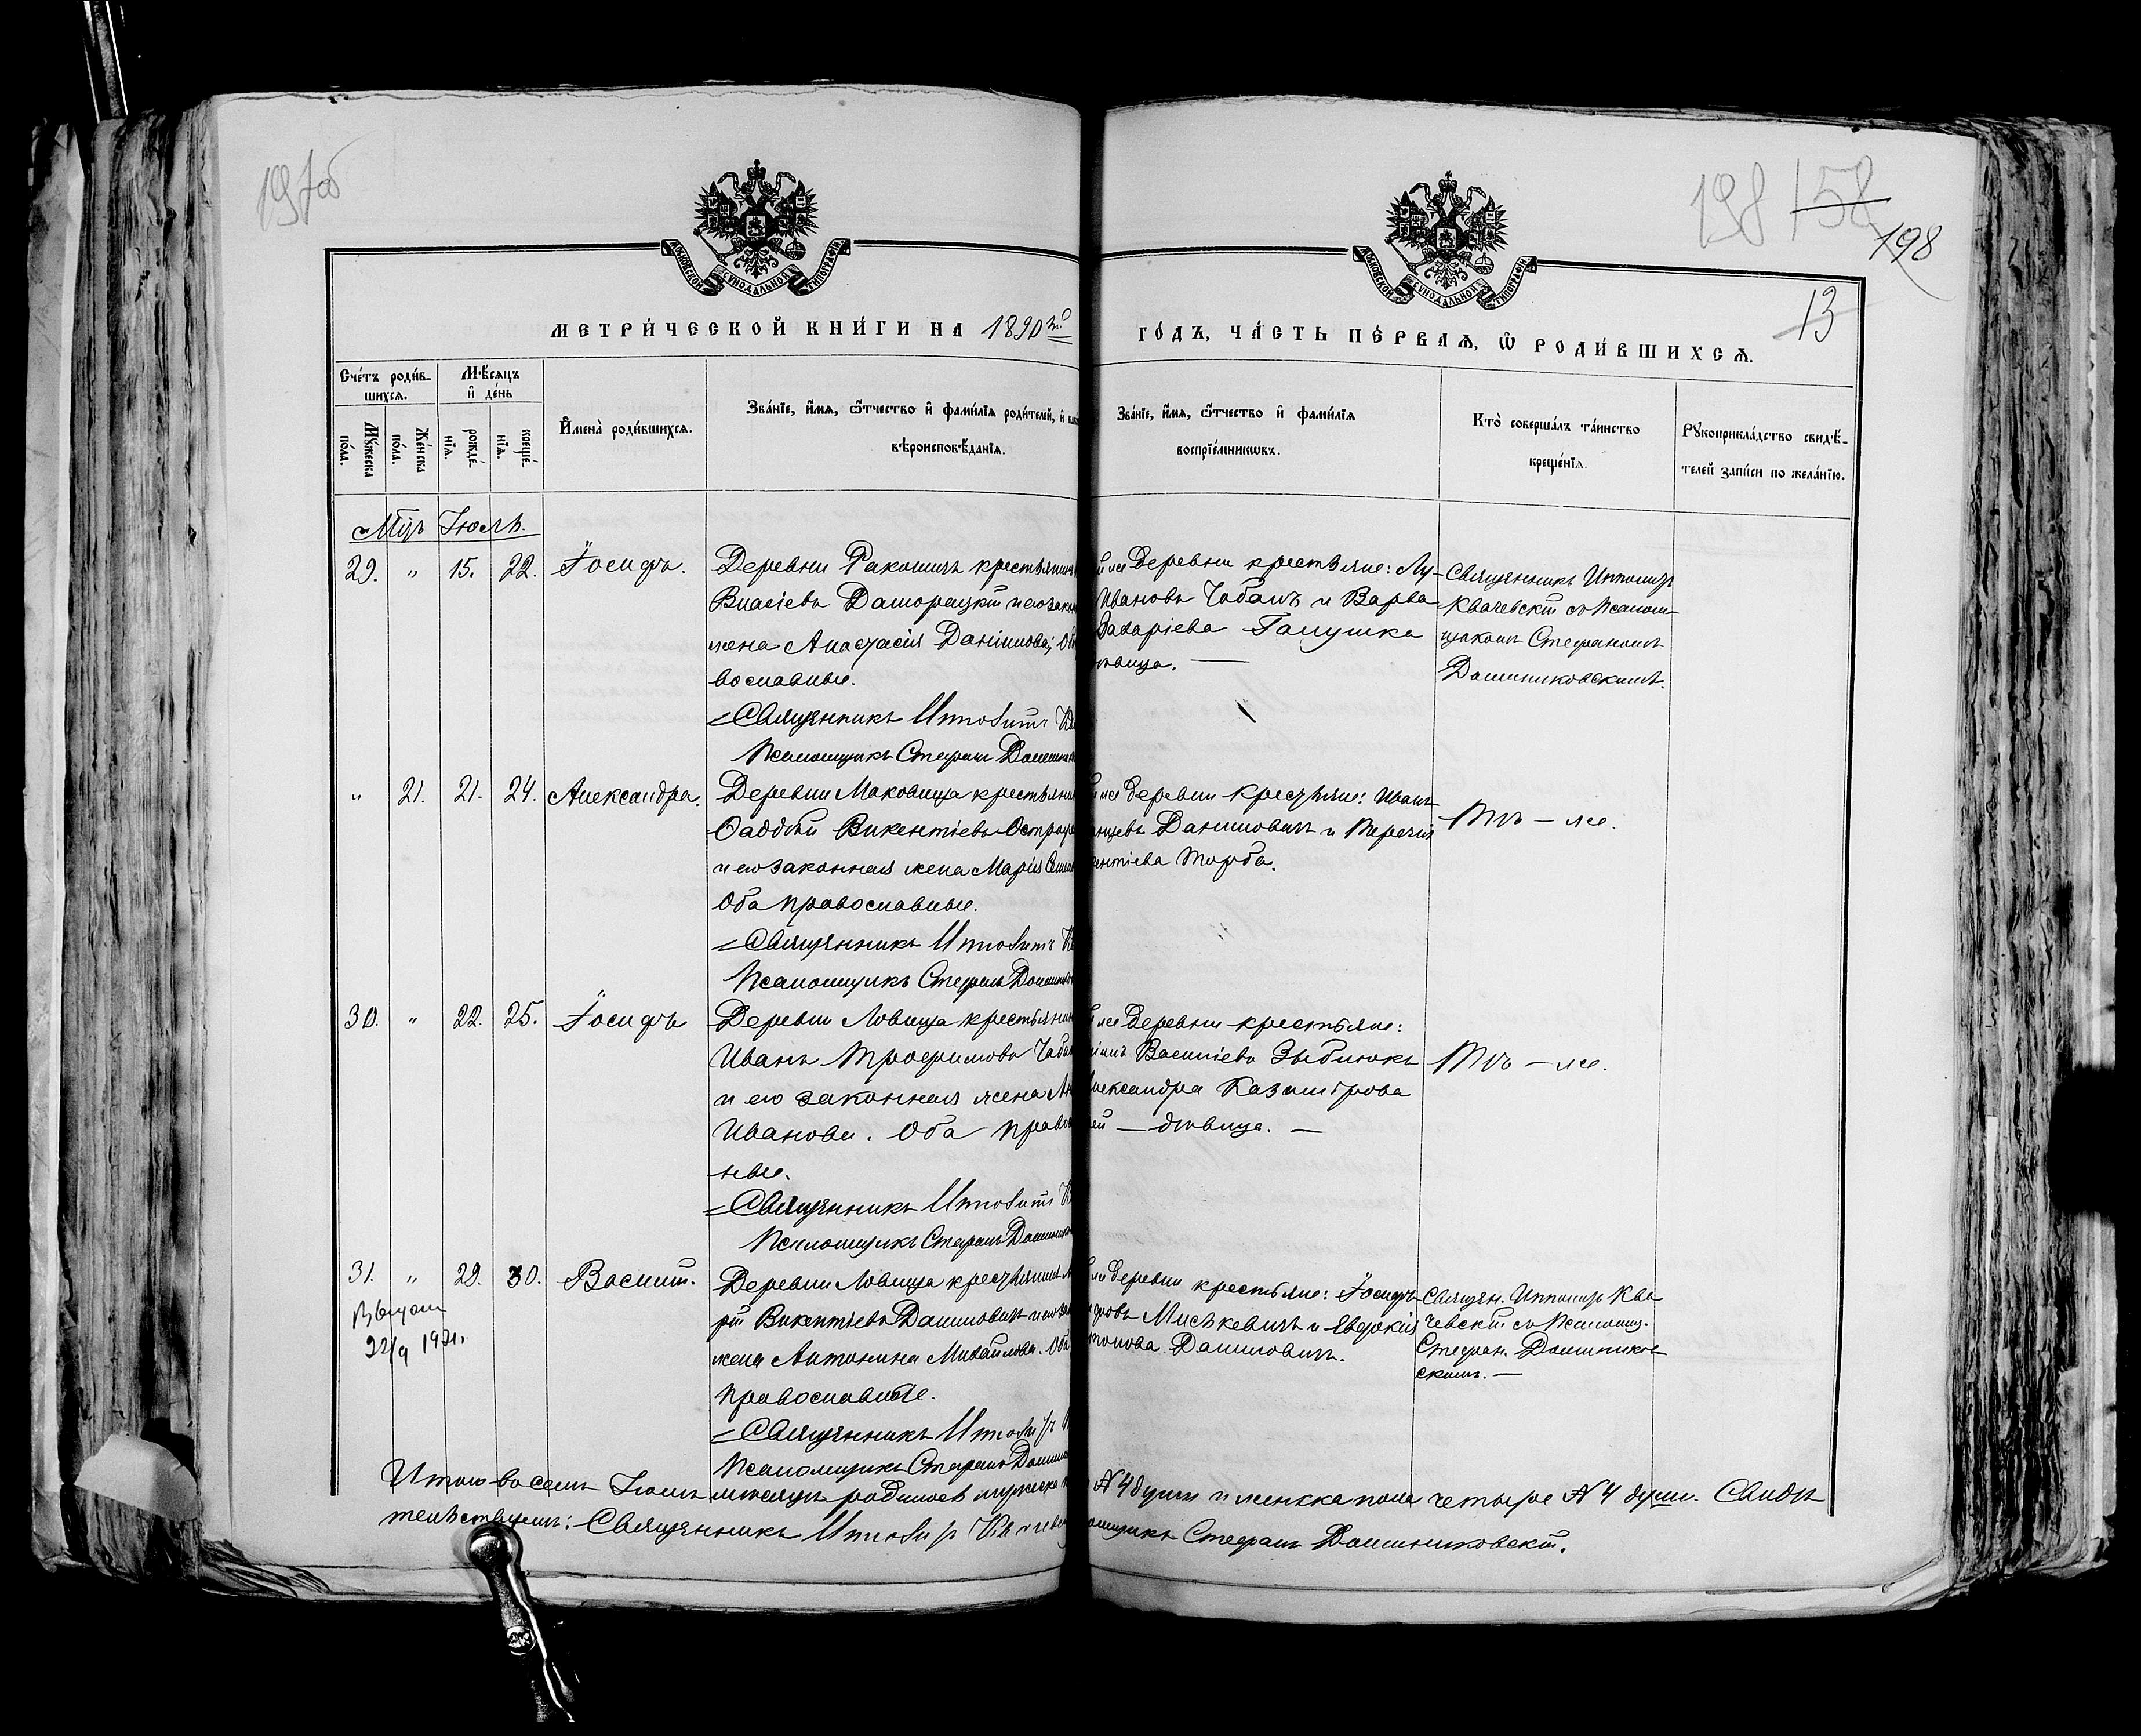 197об
198 158
198
13
МОСКОВСКОЙ СѴНОДАЛЬНОЙ ТИПОГРАФІИ
МОСКОВСКОЙ СѴНОДАЛЬНОЙ ТИПОГРАФІИ
МЕТРИ́ЧЕСКОЙ КНИ́ГИ НА 1890й
ГО́ДЪ, ЧА́СТЬ ПЕ́РВАѦ, Ѿ РОДИ́ВШИХСѦ.
Сче́тъ роди́в-
шихсѧ.
Мѣ́сѧцъ
и҆ де́нь
Мꙋ́жеска
по́ла.
Же́нска
по́ла.
рожде́-
нїѧ.
креще́-
нїѧ.
И҆мена̀ роди́вшихсѧ.
Зва́нїе, и҆́мѧ, ѻ҆́тчество и҆ фами́лїѧ роди́телей, и҆ како
вѣроисповѣ́данїѧ.
Зва́нїе, и҆́мѧ, ѻ҆́тчество и҆ фами́лїѧ
воспрїе́мникѡвъ.
Кто̀ соверша́лъ та́инство
креще́нїѧ.
Рꙋкоприкла́дство свидѣ́-
телей за́писи по жела́нїю.
Мцъ Іюль.
29. „ 15. 22. Іосифъ.
Деревни Раковичъ крестьянинъ
Власіевъ Дашорецкій и его закон
жена Анастасія Даніилова; Об
вославные.
Священникъ Ипполитъ Кв
Псаломщикъ Стефанъ Доминик
й же деревни крестьяне: Лу-
Ивановъ Чабанъ и Варва
Захаріева Галушка
ѣвица. —
Священникъ Ипполитъ
Квачевскій съ Псалом-
щикомъ Стефаномъ
Доминиковскимъ.
„ 21. 21. 24. Александра.
Деревни Маковища крестьянин
Фаддей Викентіевъ Остро
и его законная жена Марія Семен
Оба православные.
Священникъ Ипполитъ Кв
Псаломщикъ Стефанъ Доминик
й же деревни крестьяне: Иванъ
Даниловичъ и
ентіева Торба.
Тѣ — же.
30. „ 22. 25. Іосифъ
Деревни Ловища крестьянин
Иванъ Трофимовъ Чабан
и его законная жена Ан
Иванова. Оба право
ные.
Священникъ Ипполитъ К
Псаломщикъ Стефанъ Доминик
й же деревни крестьяне:
Василіевъ Зыблюкъ
лександра Казимірова
ей — дѣвица. —
Тѣ — же.
31. „ 29. 30. Василій.
22/9 1921.
Деревни Ловища крестьянинъ
рій Викентіевъ Даниловичъ и его зак
жена Антонина Михайлова. Оба
православные.
Священникъ Ипполитъ К
Псаломщикъ Стефанъ Домини
же деревни крестьяне: Іосифъ
Миськевичъ и Евдокія
тонова Даниловичъ.
Священ. Ипполитъ Ква
чевскій съ Псаломщ.
Стефан. Домиников
скимъ. —
Итого во семъ Іюлѣ мѣсяцѣ родилось мужеска п №4 души и женска пола четыре №4 души. Свидѣ
тельствуемъ: Священникъ Ипполитъ Квачевс омщикъ Стефанъ Доминиковскій.